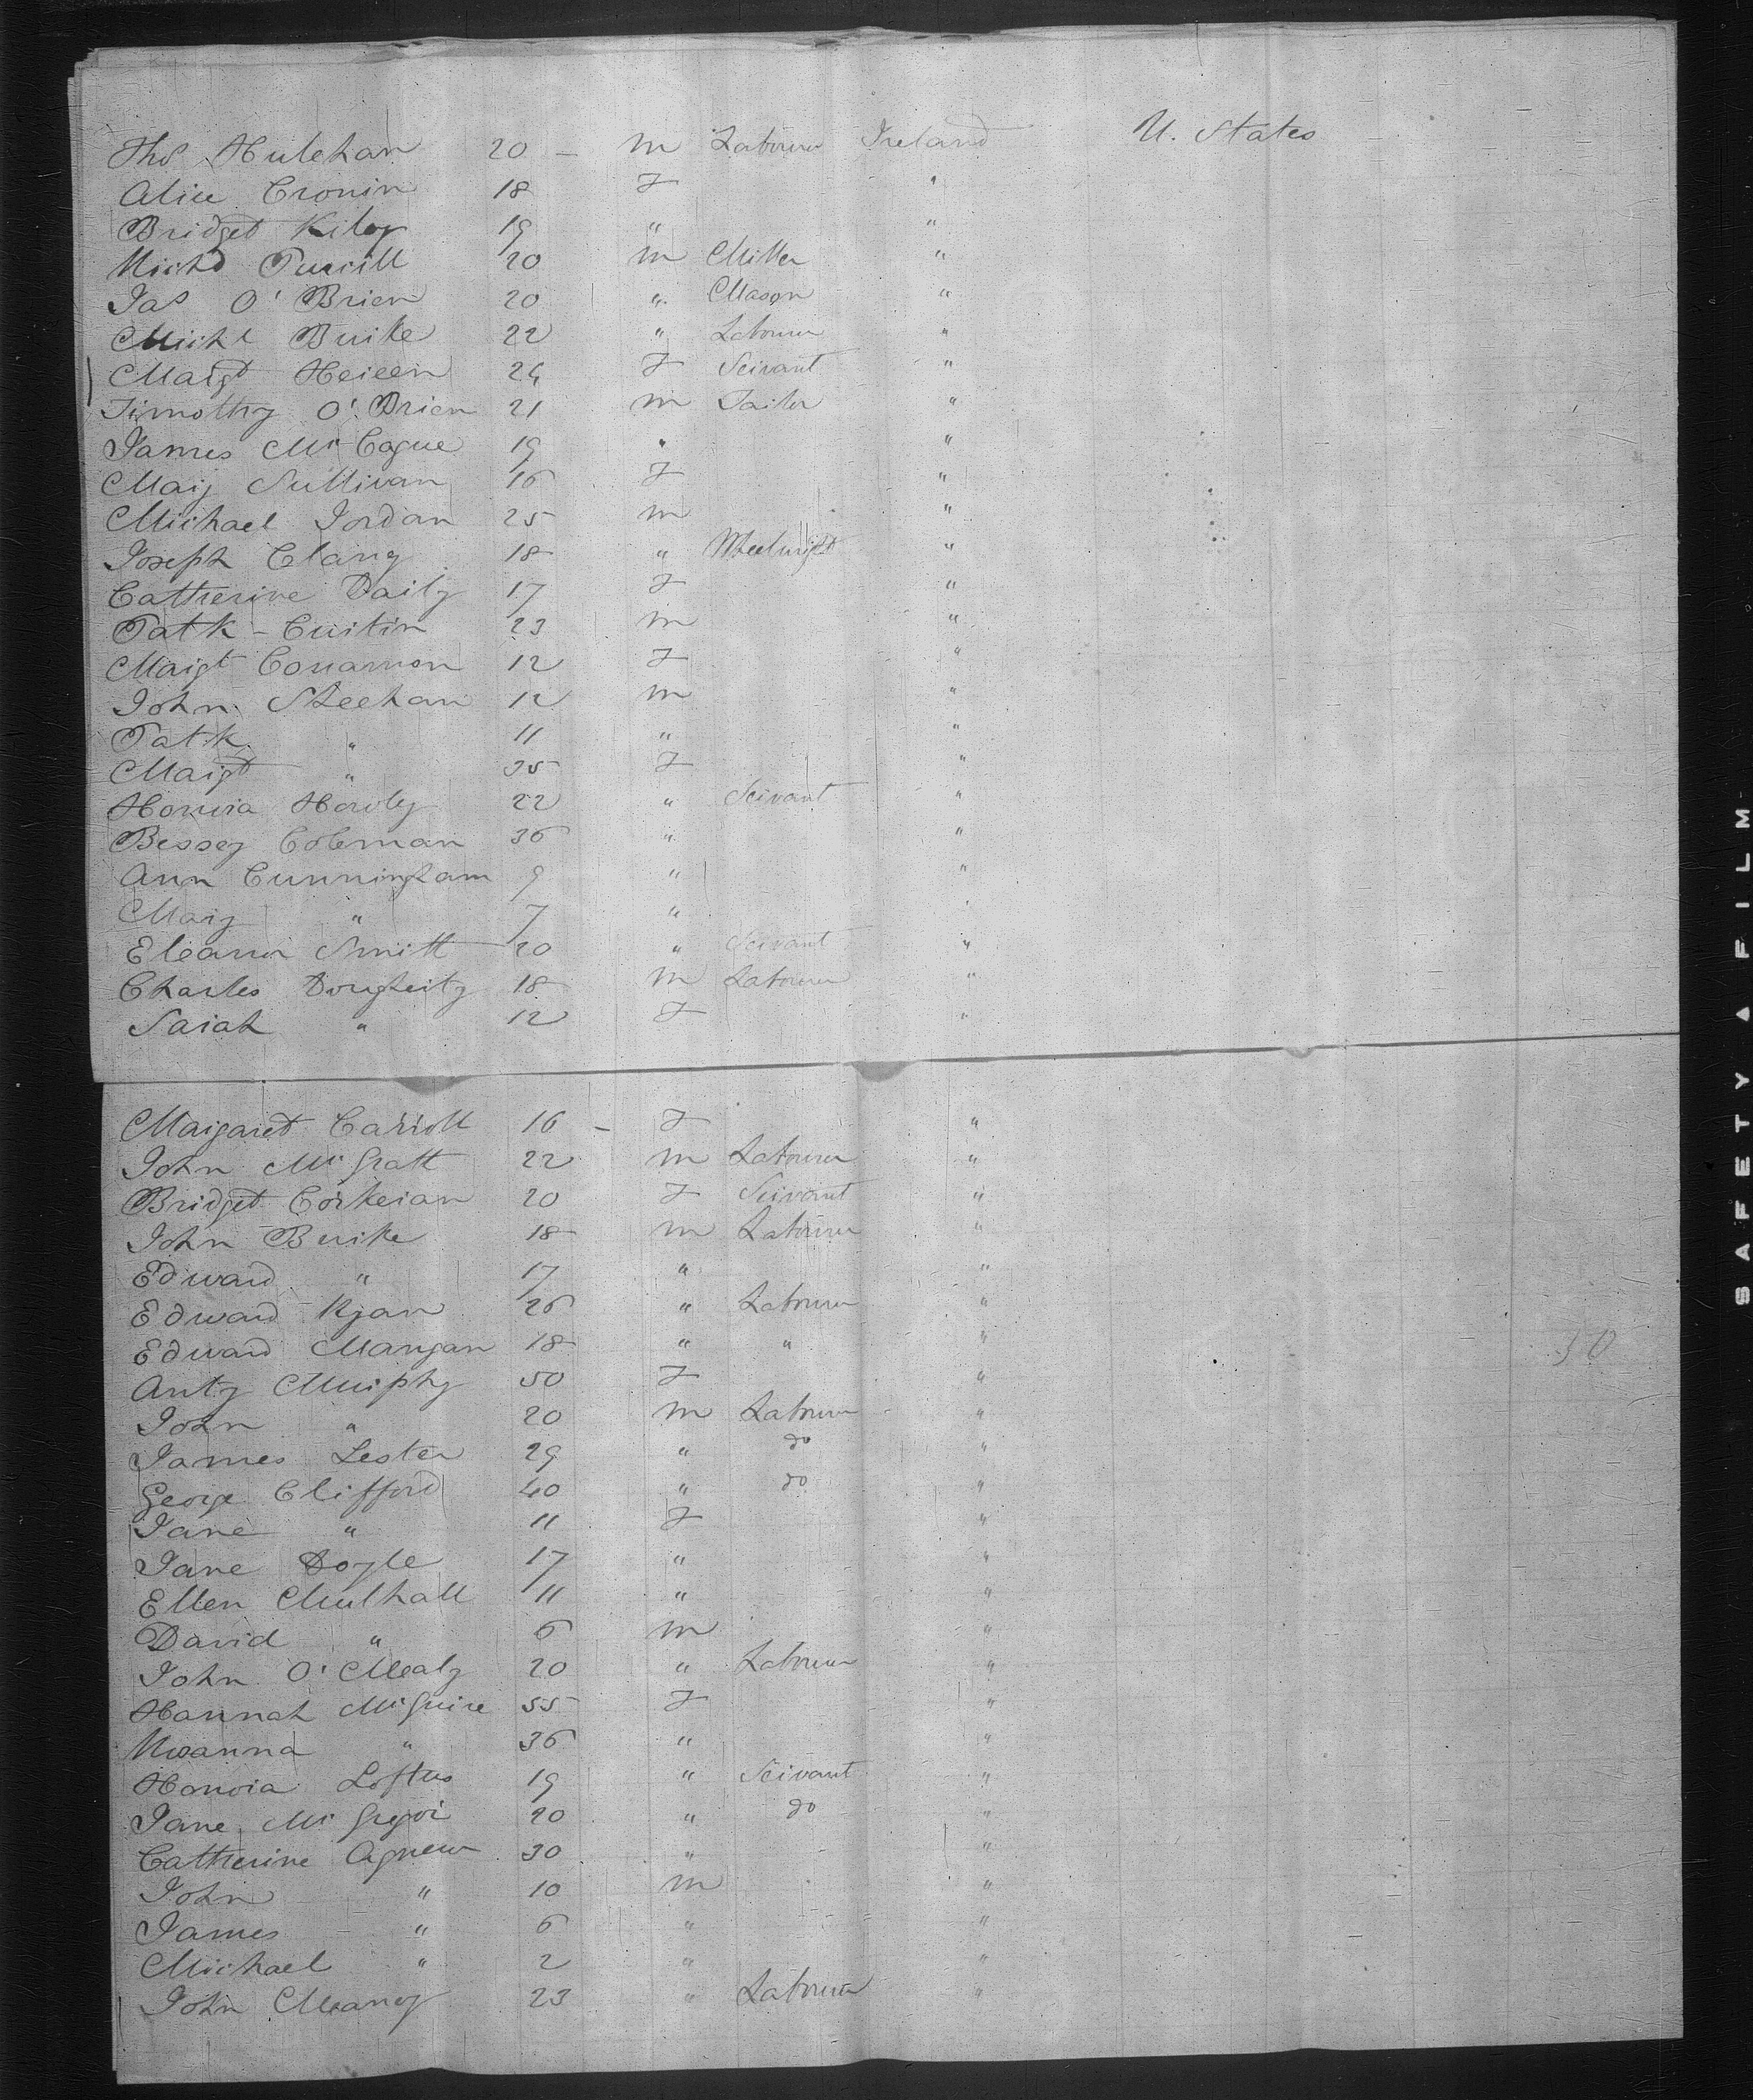 Thos Hulehan 20 — M Labourer Ireland U. States
Alice Cronin 18 F "
Bridget Kiley 19 " "
Richd Purcill 20 M Miller "
Jas O'Brien 20 " Mason "
Michl Burke 22 " Labourer "
Margt Hereen 24 F Servant "
Timothy O'Brien 21 M Tailor "
James McCague 19 " "
Mary Sullivan 16 F "
Michael Jordan 25 M "
Joseph Clany 18 " Wheelwright "
Catherine Daily 17 F "
Patk Curtin 23 M "
Margt 12 F "
John Sheehan 12 M "
Patk " 11 " "
Margt " 35 F "
Honora Hawley 22 " Servant "
Bessey Coleman 36 " "
Ann Cunningham 9 " "
Mary " 7 " "
Eleanor Smith 20 " Servant "
Charles Dougherty 18 M Labourer "
Sarah " 12 F "
Margaret Carroll 16 — F "
John McGrath 22 M Labourer "
Bridget Corkeran 20 F Servant "
John Burke 18 M Labourer "
Edward " 17 " "
Edward Ryan 26 " Labourer "
Edward Mangan 18 " " " 50
Anty Murphy 50 F "
John " 20 M Labourer "
James Lester 29 " do "
George Clifford 40 " do "
Jane " 11 F "
Jane Doyle 17 " "
Ellen Mulhall 11 " "
David " 6 M "
John O'Mealy 20 " Labourer "
Hannah McGuire 55 F "
" 36 " "
Honora Loftus 19 " Servant "
Jane McGregor 20 " do "
Catherine Agnew 30 " "
John " 10 M "
James " 6 " "
Michael " 2 " "
John Meaney 23 " Labourer "
SAFETY FILM